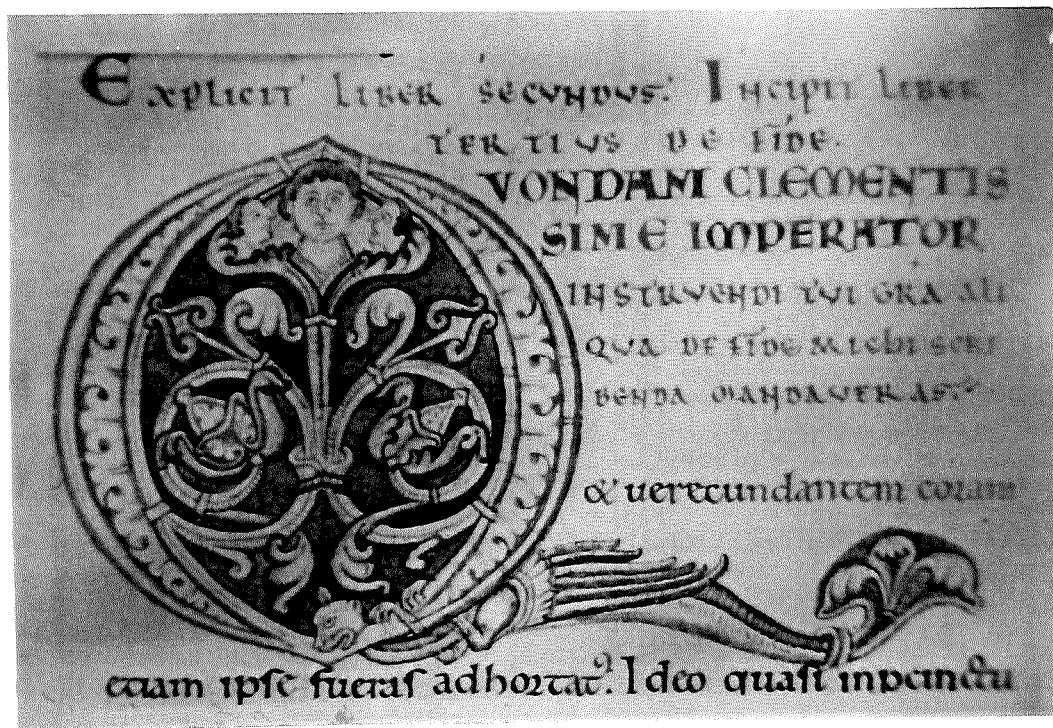 EXPLICIT LIBER SECVNDVS. INCIPIT LIBER
TERTIVS DE FIDE.
QVONDAM CLEMENTIS
SIME IMPERATOR
INSTRVENDI TVI GRA ALI
QVA DE FIDE MICHI SCRI
BENDA MANDAVERAS.
& uerecundantem coram
etiam ipse fueras adhortatꝰ. Ideo quasi inpcinctu